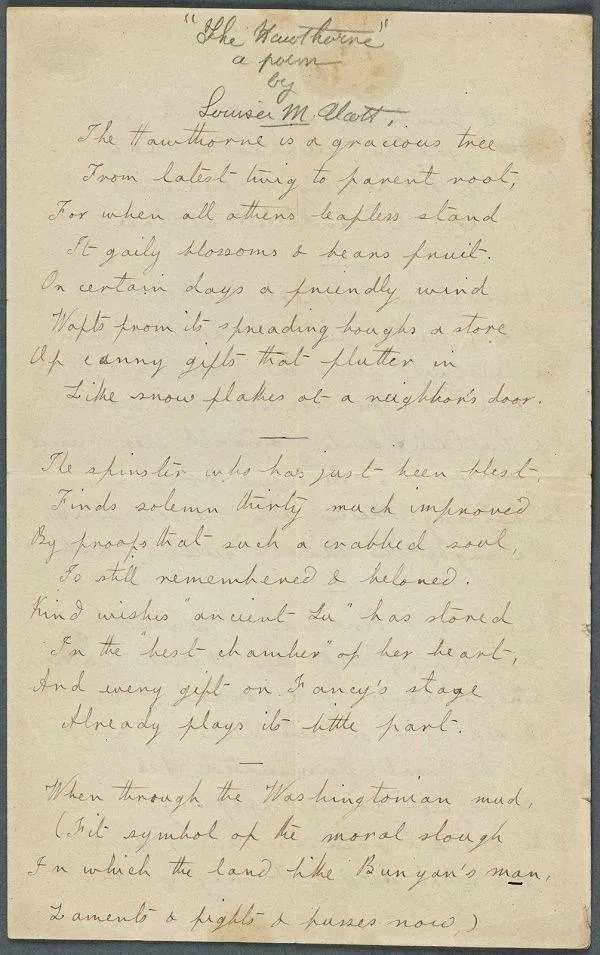 "The Hawthorne"
a poem
by
Louisa M. Alcott.
The Hawthorne is a gracious tree
From latest twig to parent root,
For when all others leafless stand
It gaily blossoms & bears fruit.
On certain days a friendly wind
Wafts from its spreading boughs a store
Of canny gifts that flutter in
Like snow flakes at a neighbor's door.
The spinster who has just been blest,
Finds solemn thirty much improved
By proofs that such a crabbed soul,
Is still remembered & beloved.
Kind wishes "ancient Lu" has stored
In the "best chamber" of her heart,
And every gift on Fancy's stage
Already plays its little part.
When through the Washingtonian mud,
(Fit symbol of the moral slough
In which the land like Bunyan's man,
Laments & fights & purses now,)